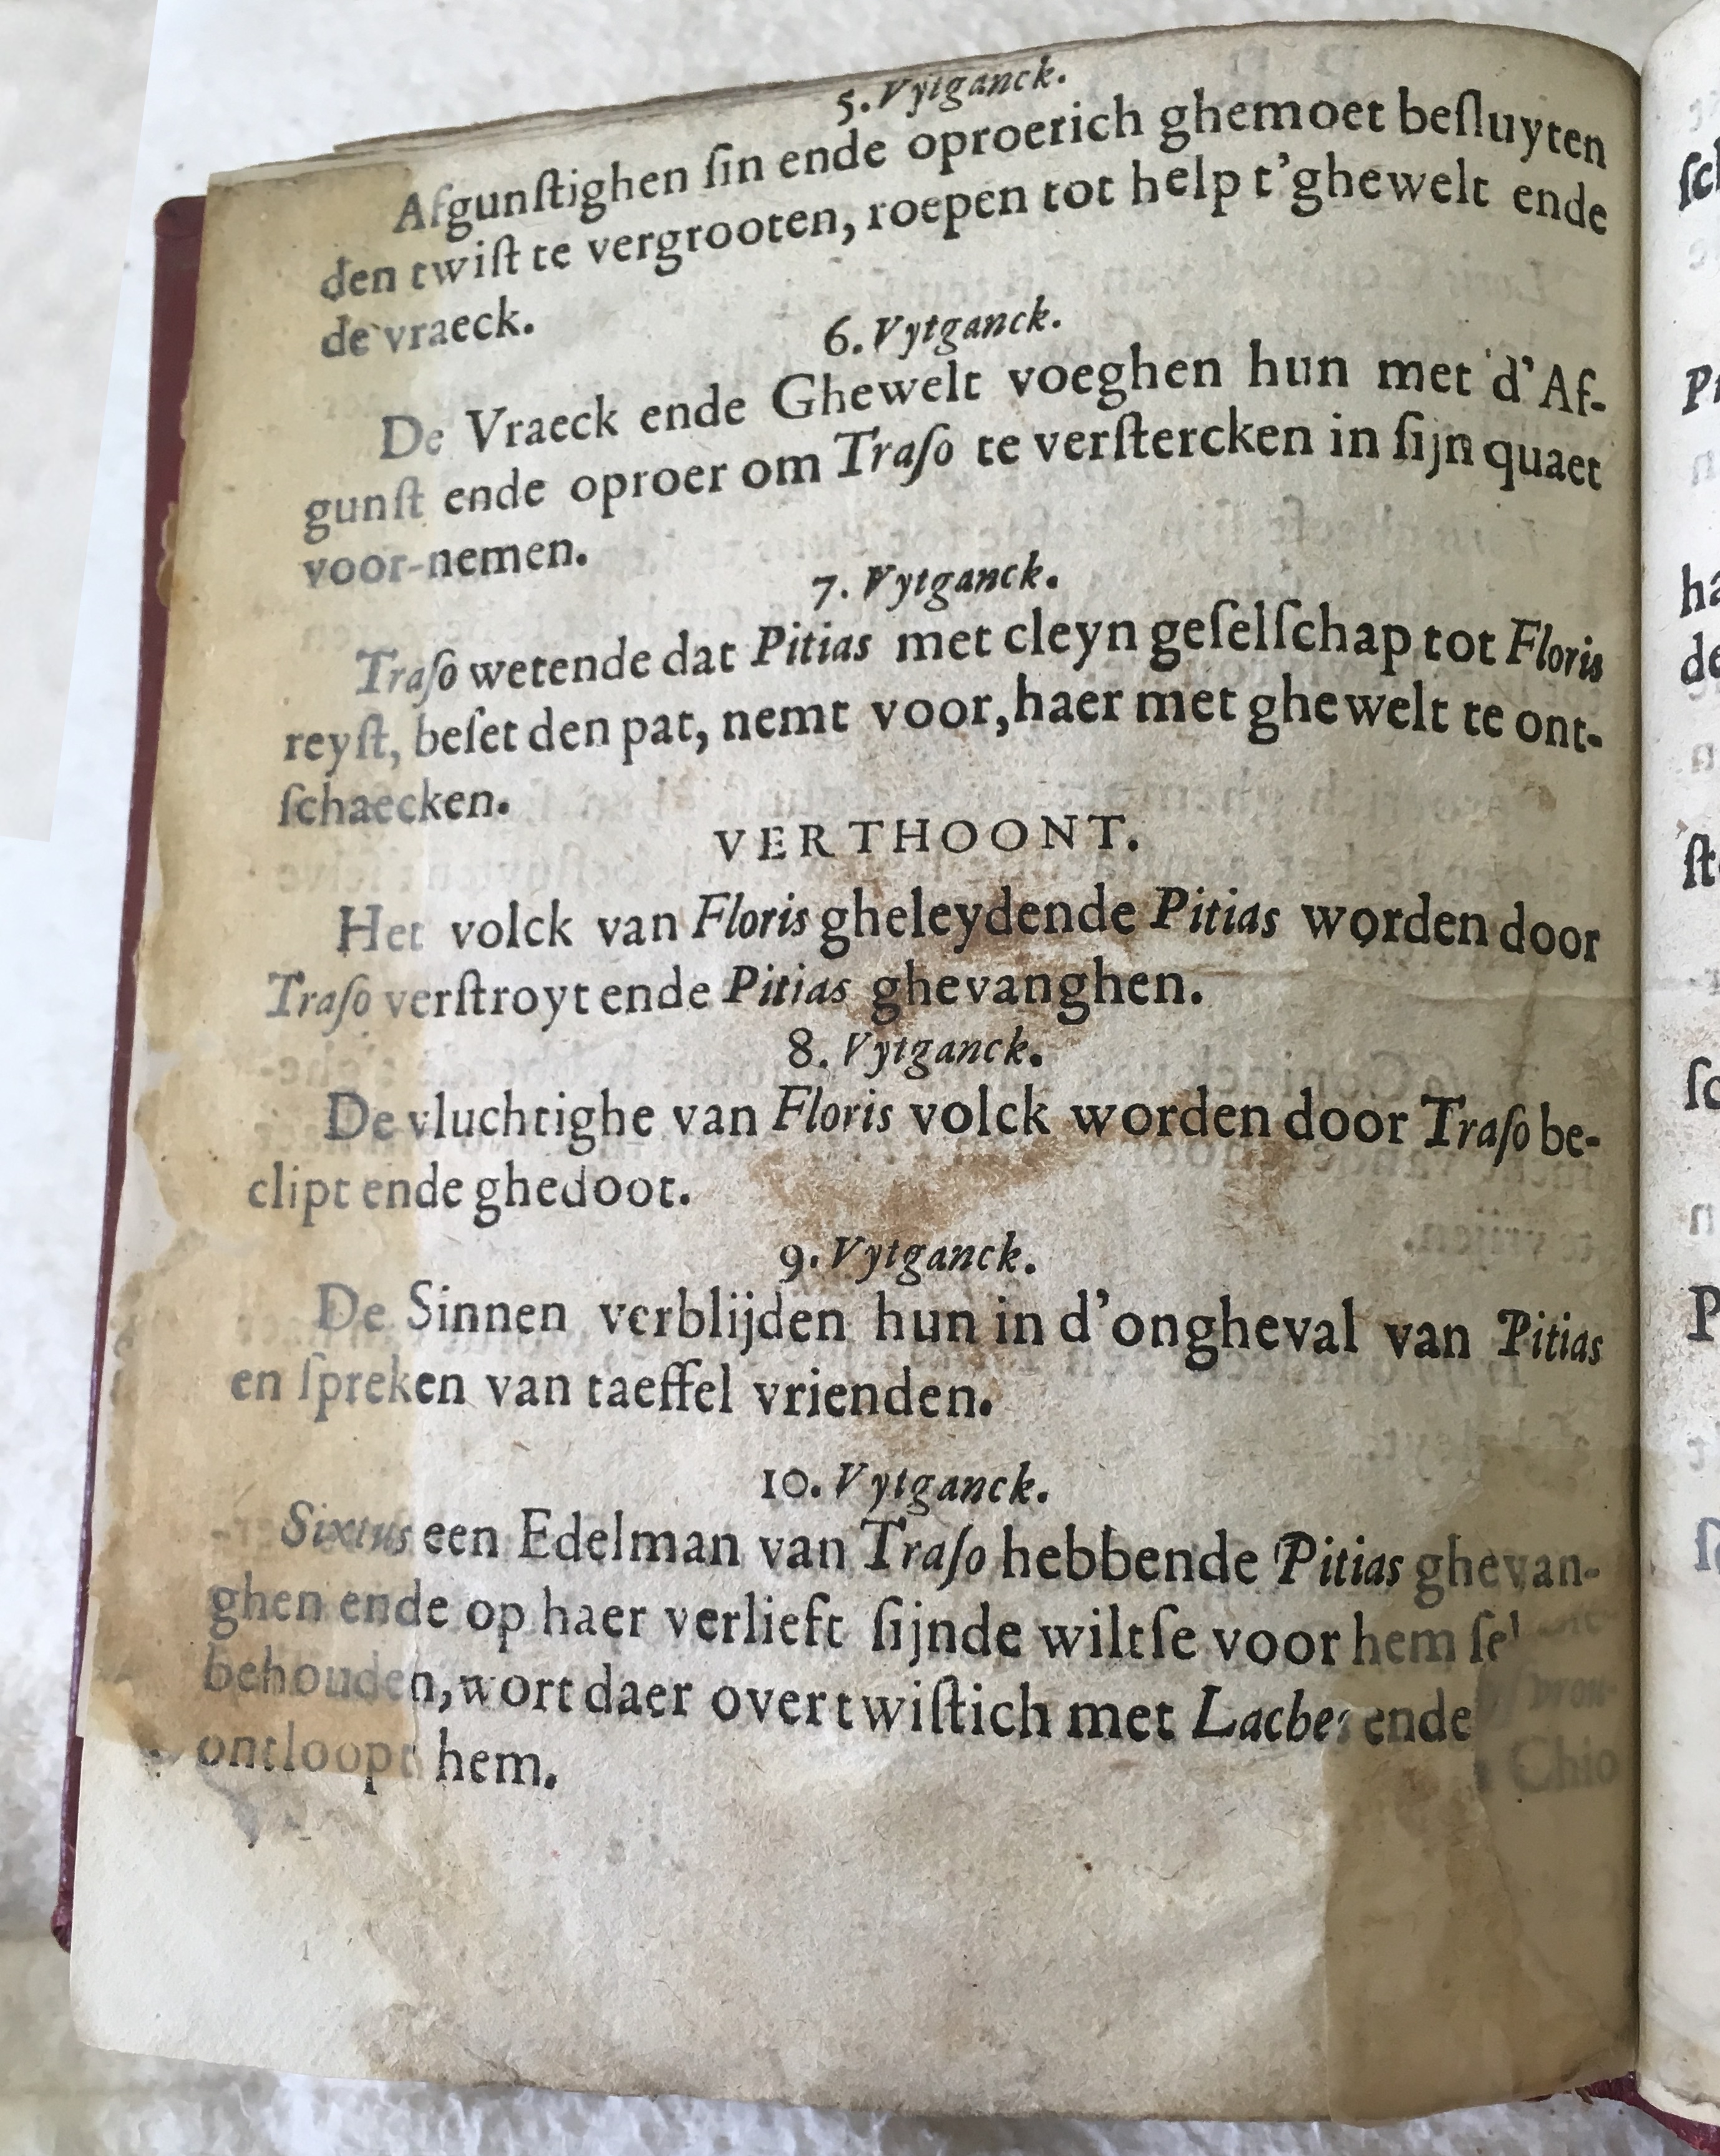 5. Vytganck.
Afgunſtighen ſin ende oproerich ghemoet beſluyten
den twiſt te vergrooten, roepen tot help t'ghewelt ende
de vraeck.
6. Vytganck.
De Vraeck ende Ghewelt voeghen hun met d'Af-
gunſt ende oproer om Traſo te verſtercken in ſijn quaet
voor-nemen.
7. Vytganck.
Traſo wetende dat Pitias met cleyn geſelſchap tot Floris
reyſt, beſet den pat, nemt voor, haer met ghewelt te ont-
ſchaecken.
VERTHOONT.
Het volck van Floris gheleydende Pitias worden door
Traſo verſtroyt ende Pitias ghevanghen.
8. Vytganck.
De vluchtighe van Floris volck worden door Traſo be-
clipt ende ghedoot.
9. Vytganck.
De Sinnen verblijden hun in d'ongheval van Pitias
en ſpreken van taeffel vrienden.
10. Vytganck.
Sixtus een Edelman van Traſo hebbende Pitias ghevan-
ghen ende op haer verlieft ſijnde wiltſe voor hem ſel
behouden, wort daer over twiſtich met Lacbes ende
ontloopt hem.
Chio